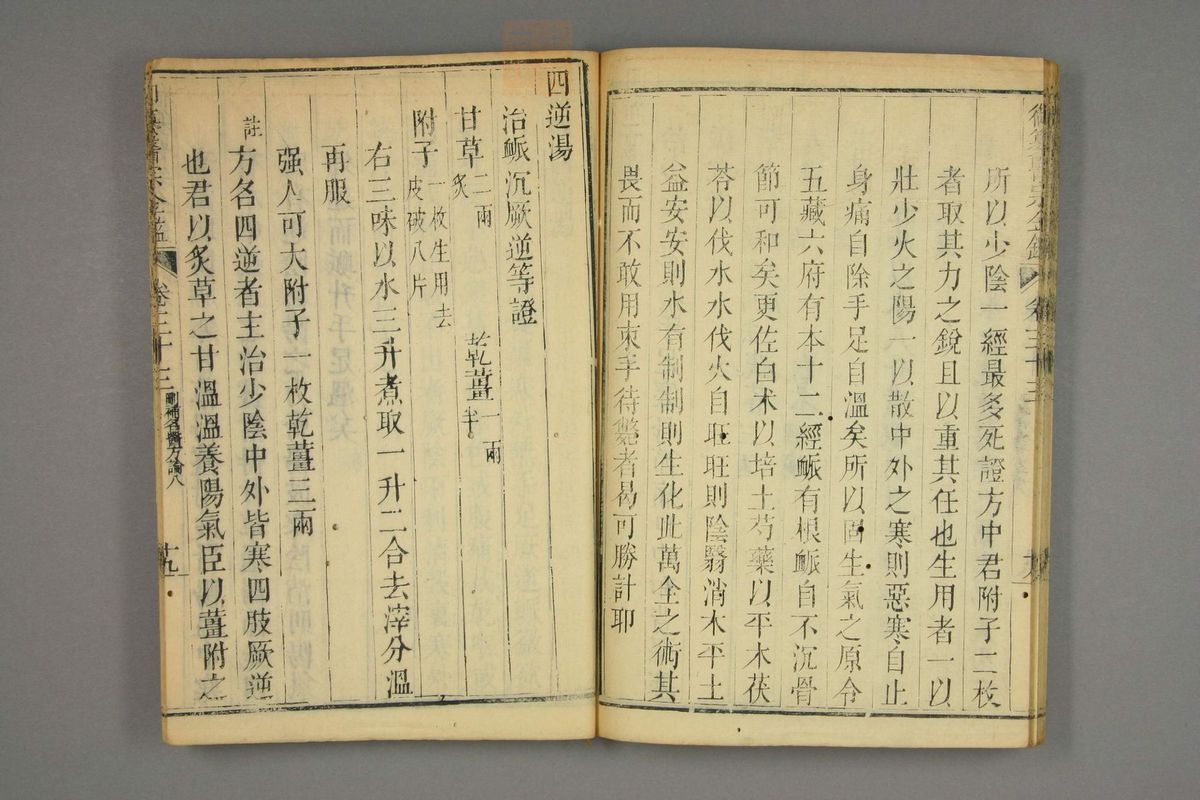 所以少陰一經最多死證方中君附子二枚
者取其力之銳且以重其任也生用者一以
壯少火之陽一以散中外之寒則惡寒自止
身痛自除手足自溫矣所以固生氣之原令
五藏六府有本十二經脈有根脈自不沉骨
節可和矣更佐白术以培土芍藥以平木茯
苓以伐水水伐火自旺旺則陰翳消木平土
益安安則水有制制則生化此萬全之術其
畏而不敢用束手待斃者曷可勝計耶
四逆湯
治脈沉厥逆等證
甘草二兩炙 乾薑一兩半
附子一枚生用去皮破八片
右三味以水三升煮取一升二合去滓分溫
再服
强人可大附子一枚乾薑三兩
註方名四逆者主治少陰中外皆寒四肢厥逆
也君以炙草之甘溫溫養陽氣臣以薑附之
卷三十三 刪補名醫方論八 十九